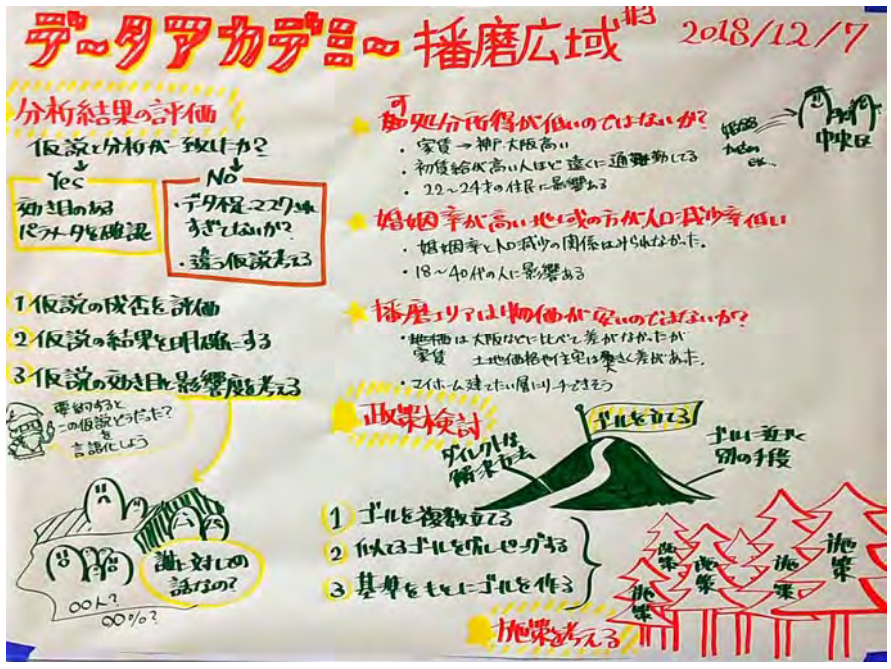 データアカデミー播磨広域 #3 2018/12/7
分析結果の評価
仮説と分析が一致したか?
Yes
効き目のある
パラメータを確認
No
・データ不足・マスクされ
すぎてないか?
・違う仮説考える
1 仮説の成否を評価
2 仮説の結果を明確にする
3 仮説の効き目と影響度を考える
要約すると
この仮説どうだった?
を
言語化しよう
誰に対しての
話なの?
〇〇人?
〇〇%?
可処分所得が低いのではないか?
・家賃→神戸・大阪高い
・初賃給が高い人ほど遠くに通勤してる
・22〜24才の住民に影響ある
中央区
婚姻率が高い地域の方が人口減少率低い
・婚姻率と人口減少の関係はみられなかった。
・18〜40代の人に影響ある
播磨エリアは物価が安いのではないか?
・地価は大阪などに比べて差がなかったが
家賃 土地価格や住宅は大きく差があった。
・マイホーム建てたい層にリーチできそう
政策検討
ゴールを立てる
ダイレクトな
解決方法
ゴールに近づく
別の手段
1 ゴールを複数立てる
2 似てるゴールをグルーピングする
3 基準をもとにゴールを作る
施策を考える
施策
施策
施策
施策
施策